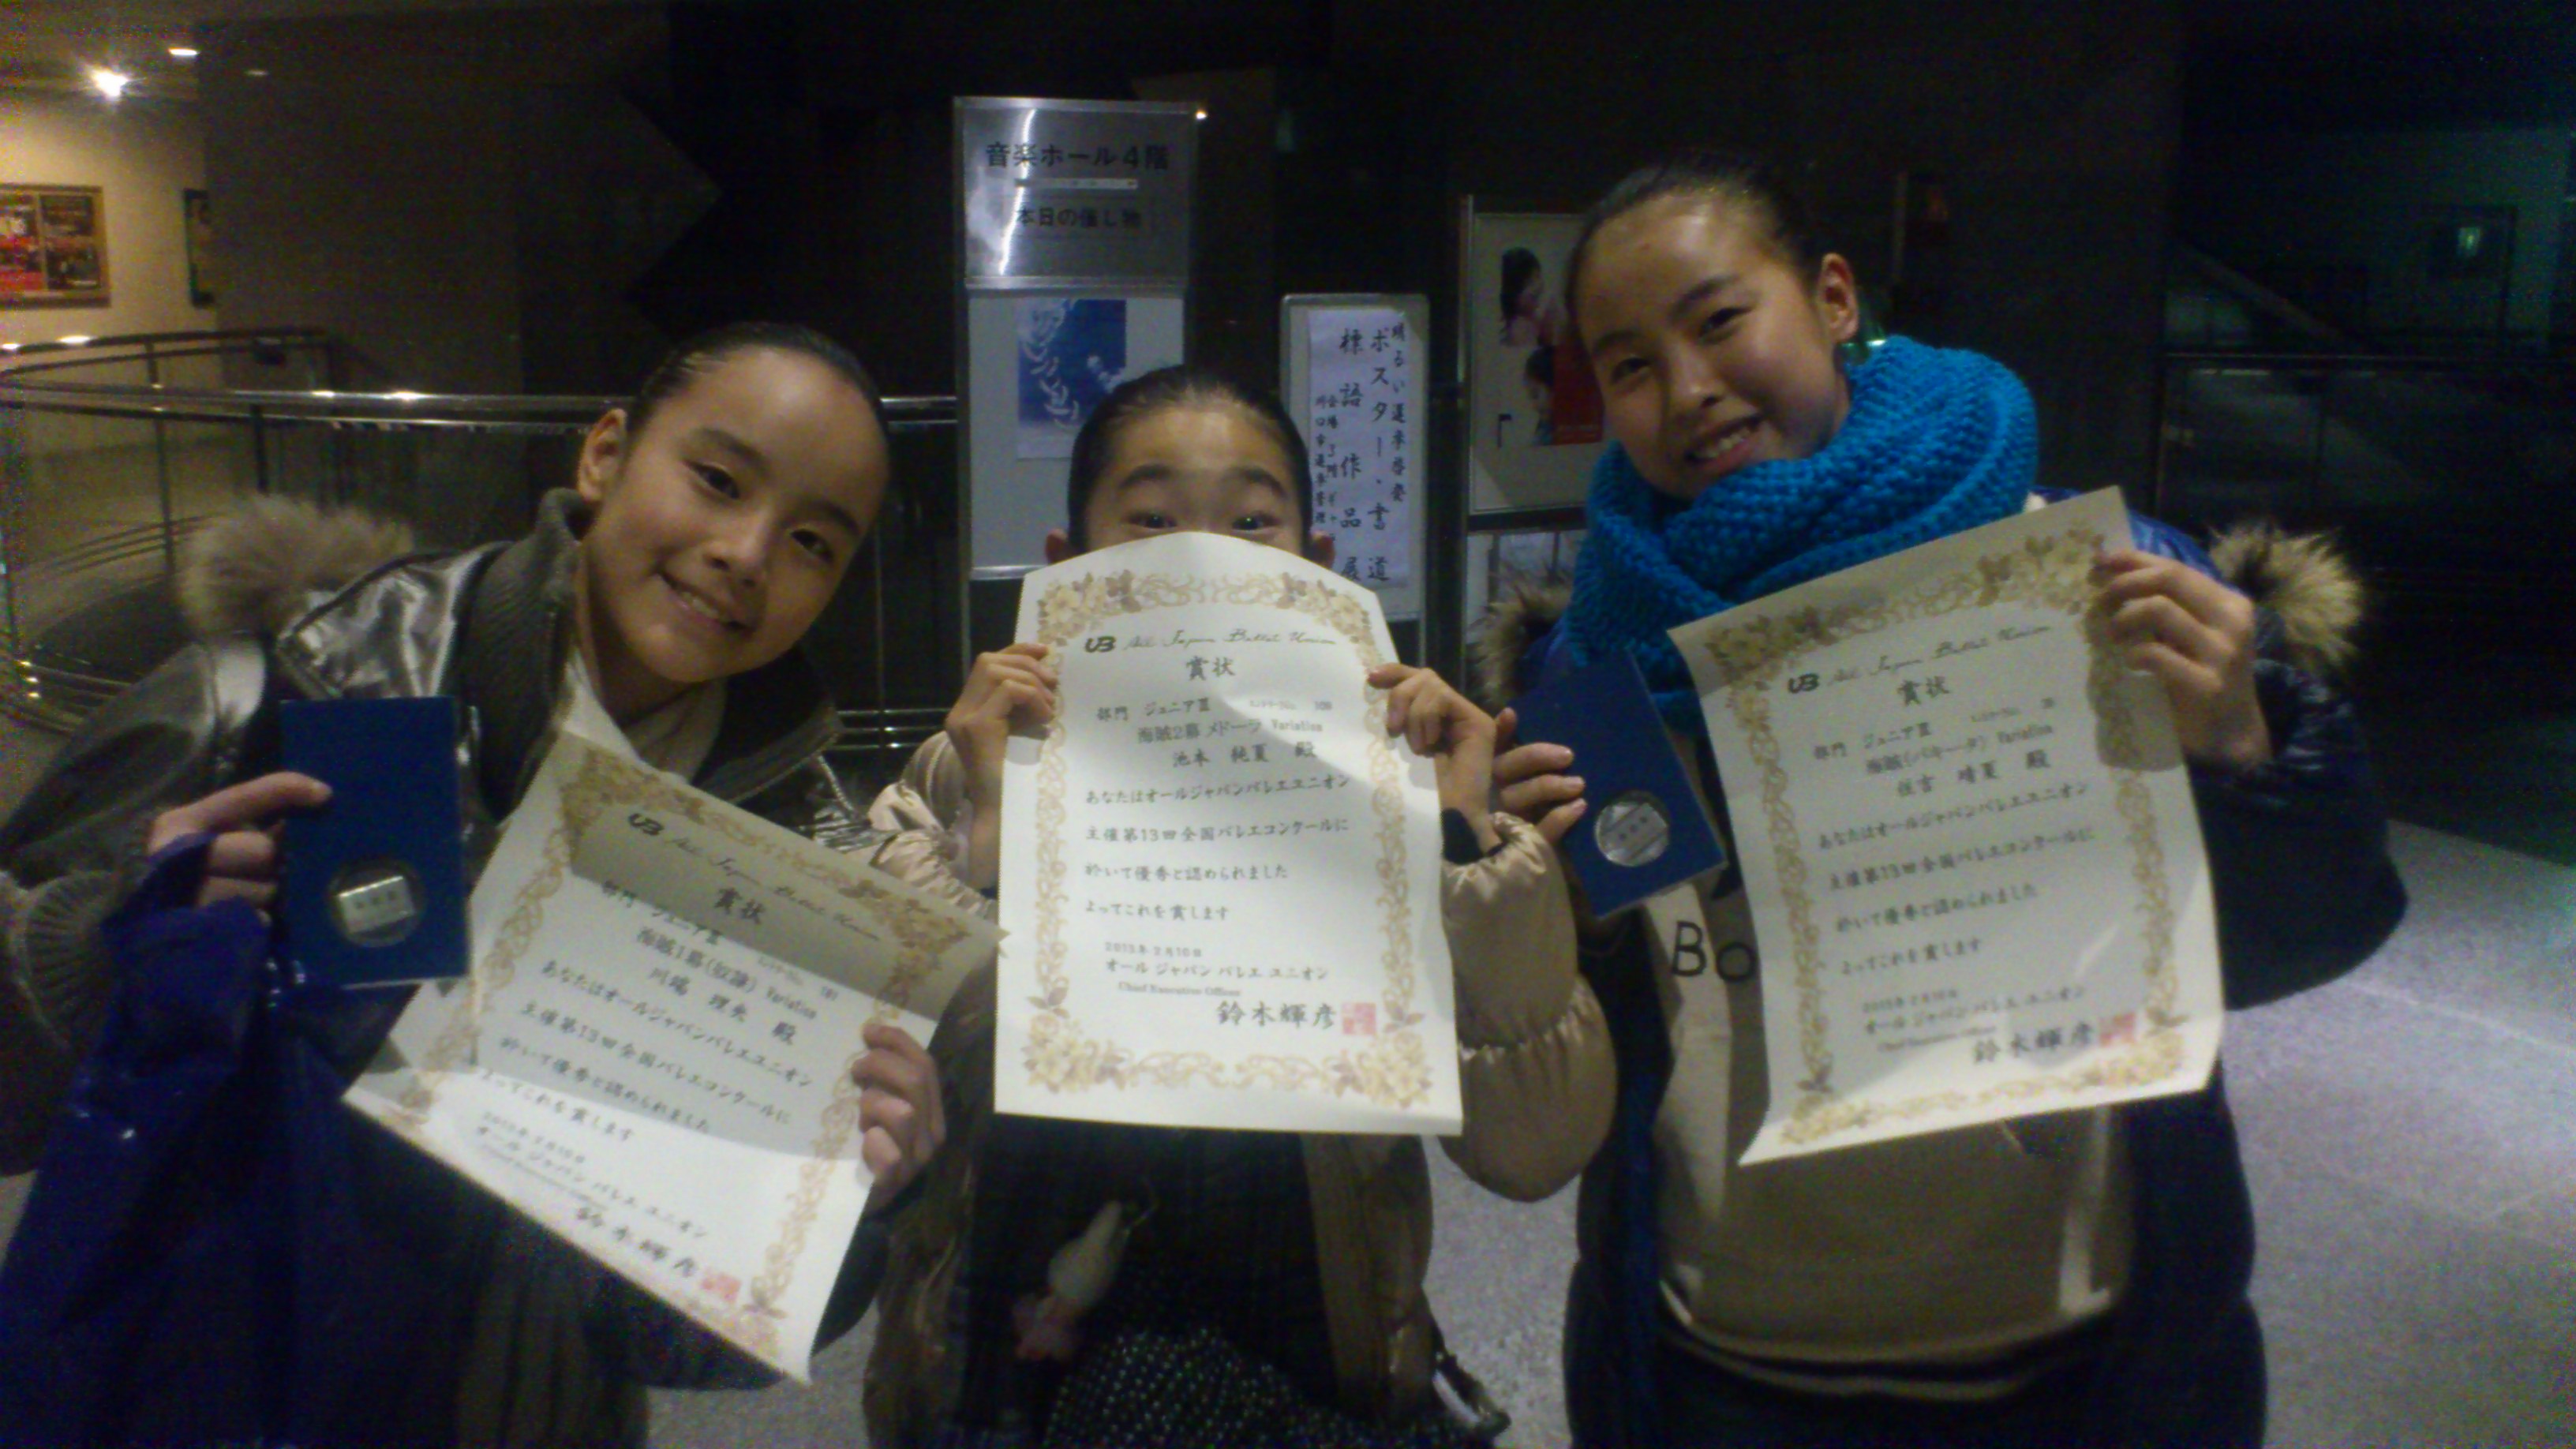 音楽ホール4階
本日の催し物
明るい選挙啓発
ポスター、書道
標語作品展
UB All Japan Ballet Union
賞状
部門 ジュニアⅢ
海賊1幕(奴隷) Variation
川端 理央 殿
あなたはオールジャパンバレエユニオン
主催第13回全国バレエコンクールに
於いて優秀と認められました
よってこれを賞します
2013年2月10日
オール ジャパン バレエ ユニオン
鈴木輝彦
UB All Japan Ballet Union
賞状
部門 ジュニアⅢ エントリーNo.
海賊2幕 メドーラ Variation
池本 純夏 殿
あなたはオールジャパンバレエユニオン
主催第13回全国バレエコンクールに
於いて優秀と認められました
よってこれを賞します
2013年2月10日
オール ジャパン バレエ ユニオン
Chief Executive Officer
鈴木輝彦
UB All Japan Ballet Union
賞状
部門 ジュニアⅢ エントリーNo.
海賊(パキータ) Variation
住吉 晴夏 殿
あなたはオールジャパンバレエユニオン
主催第13回全国バレエコンクールに
於いて優秀と認められました
よってこれを賞します
2013年2月10日
オール ジャパン バレエ ユニオン
Chief Executive Officer
鈴木輝彦
Bo